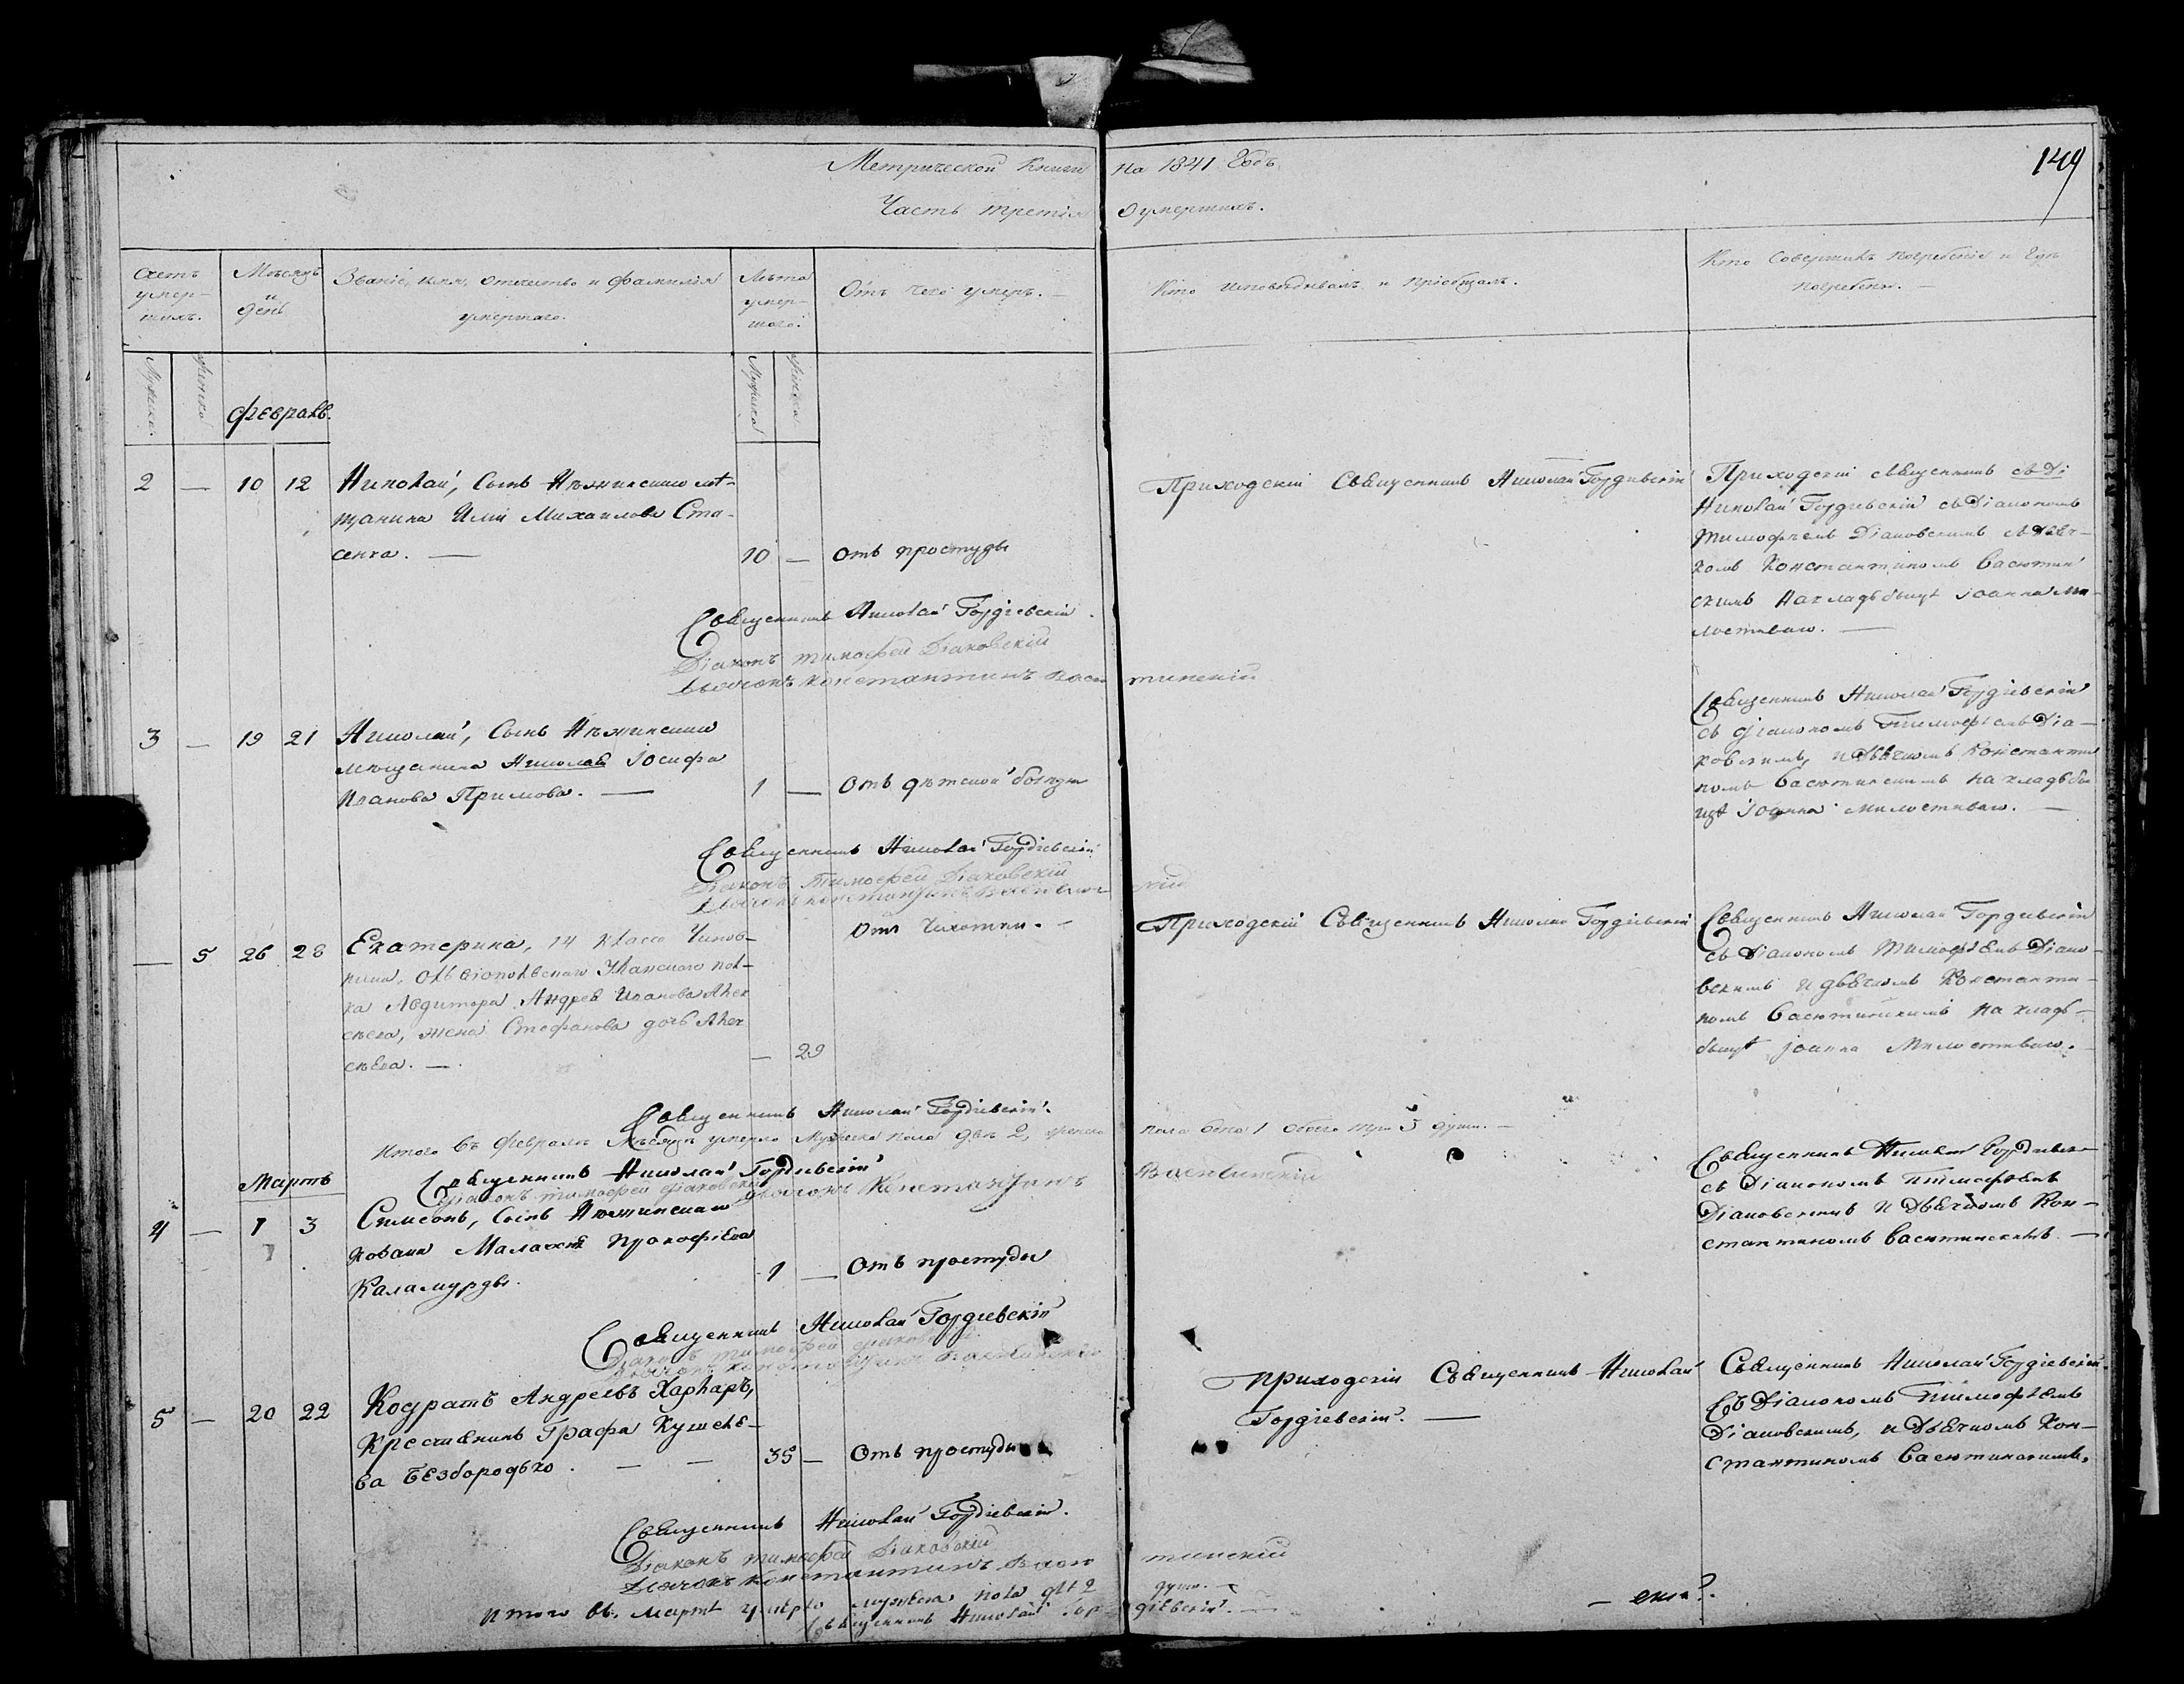 Метрической Книги на 1841 Годъ
149
Часть третія О умершихъ.
Счетъ умер-шихъ.
Мѣсяцъ и день
Званіе, имя, отчество и фамилія умершаго.
Лѣта умер-шаго.
Отъ чего умеръ.
Кто исповѣдывалъ и пріобщалъ.
Кто Совершалъ погребеніе и Гдѣ погребены.
Мужска.
Женска
Мужска
Женска
Февраль.
2 — 10 12
Николай, Сынъ Нѣжинскаго мѣ-
щанина Иліи Михаилова Ста-
сенка. —
10 — Отъ простуды
Приходскій Священникъ Николай Гордіевскій
Приходскій священникъ съ Ді
Николай Гордіевскій съ Діакономъ
Тимофѣемъ Діаковскимъ съ Дьяч-
комъ Константиномъ Васютин
скимъ на кладбищѣ Іоанна Ми-
лостиваго. —
Священникъ Николай Гордіевскій.
Діаконъ Тимофей Діаковскій
Дьячокъ Константинъ Васютинскій
3 — 19 21
Николай, Сынъ Нѣжинскаго
мѣщанина Николая Іосифа
Иванова Примова. —
1 — Отъ дѣтской болѣзни
Священникъ Николай Гордіевскій
съ діакономъ Тимофѣемъ Діа-
ковскимъ, и Дьячкомъ Константи
номъ Васютинскимъ на кладби
щѣ Іоанна милостиваго. —
Священникъ Николай Гордіевскій
Діаконъ Тимофей Діаковскій
— 5 26 28
Екатерина, 14 класса Чинов-
ника, Ольвіопольскаго Уланскаго пол-
ка Аудитора Андрея Иванова Алек
сѣева, жена Стефанова дочь Алек
сѣева. —
— 29
Отъ Чихотки. —
Приходскій Священникъ Николай Гордіевскій
Священникъ Николай Гордіевскій
съ Діакономъ Тимофѣемъ Діако-
вскимъ и дьячкомъ Константи-
номъ Васютинскимъ на кладб-
бищѣ Іоанна Милостиваго.
Священникъ Николай Гордіевскій.
Итого въ февралѣ мѣсяцѣ умерло Мужска пола двѣ 2, женска пола одна 1 обоего три 3 души. —
Священникъ Николай Гордіевскій
Діаконъ Тимофей Діаковскій Дьячокъ Константинъ Васютинскій
Мартъ
4 — 1 3
Симеонъ, Сынъ Нѣжинскаго
козака Малахія Прокофіева
Каламурды.
1 — Отъ простуды
Священникъ Николай Гордіевск
съ Діакономъ Тимофѣемъ
Діаковскимъ и Дьячкомъ Кон-
стантиномъ Васютинскимъ —
Священникъ Николай Гордіевскій
5 — 20 22
Кодратъ Андреевъ Харкаръ,
Крестьянинъ Графа Кушеле-
ва Безбородько. — —
35 — Отъ простуды
Приходскій Священникъ Николай
Гордіевскій. —
Священникъ Николай Гордіевскій.
Съ Діакономъ Тимофѣемъ
Діаковскимъ, и Дьячкомъ Кон-
стантиномъ Васютинскимъ.
Священникъ Николай Гордіевскій.
Діаконъ Тимофей Діаковскій
Дьячокъ Константинъ Васютинскій
Итого въ Мартѣ умерло мужска пола двѣ 2 души. —
Священникъ Николай Гордіевскій. —